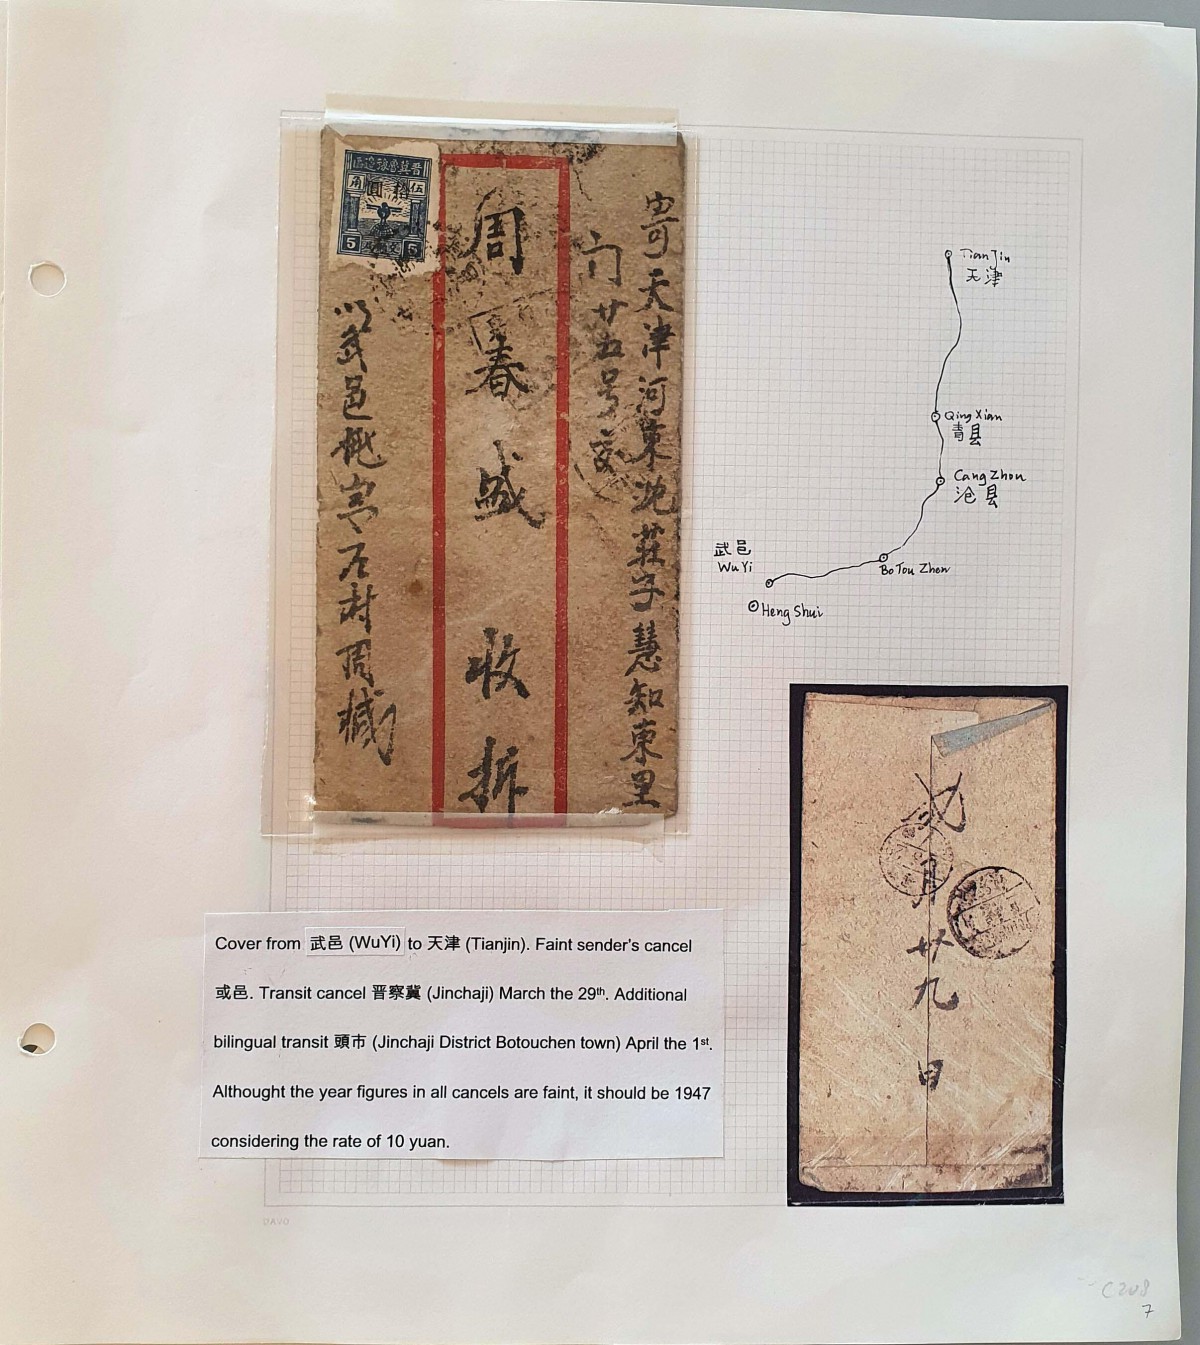 晋冀魯豫邊區
角 伍
圓 拾
5 5
寄天津河東沈莊字慧知東里
门廿五号交
周春盛收拆
武邑
石村周緘
TianJin
天津
Qing Xian
青县
Cang Zhou
沧县
武邑
Wu Yi
Bo Tou Zhen
Heng Shui
月廿九日
Cover from 武邑 (WuYi) to 天津 (Tianjin). Faint sender's cancel
或邑. Transit cancel 晋察冀 (Jinchaji) March the 29th. Additional
bilingual transit 頭市 (Jinchaji District Botouchen town) April the 1st.
Althought the year figures in all cancels are faint, it should be 1947
considering the rate of 10 yuan.
DAVO
C208
7